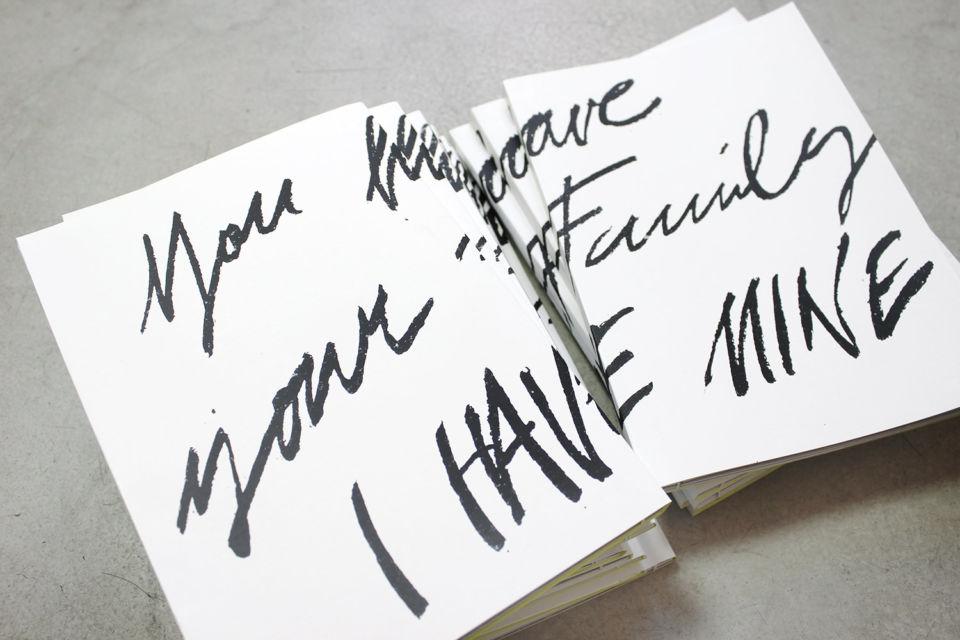 You have
your Family
I HAVE MINE